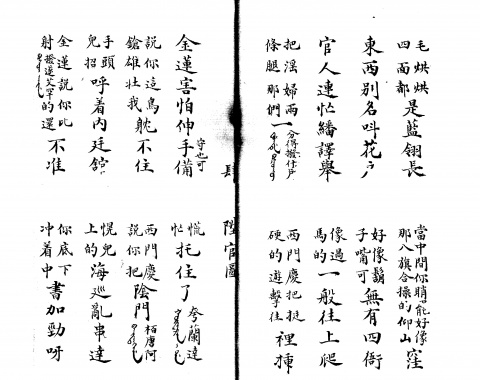 毛烘烘
四面都
是藍翎長
當中間你睄能好像
那八旗合操的仰山
窪
東西別名叫花户
好像鬍
子嘴可
無有四衙
官人連忙繙譯舉
像過
馬的
一般往上爬
把淫婦兩
條腿那們
一
分得撥什户
西門慶把挺
硬的遊擊往
裡揷
肆
陞官圖
金蓮害怕伸手備
守也可
慌
忙
托住了
參蘭達
說你這鳥
鎗雄壯我
躭不住
西門慶
說你把
陰門
栢唐阿
手頭
兒招
呼着内廷舘
慌兒
上的
海巡亂串達
金蓮說你此
射
的還
不准
你底下
冲着中
書加勁呀